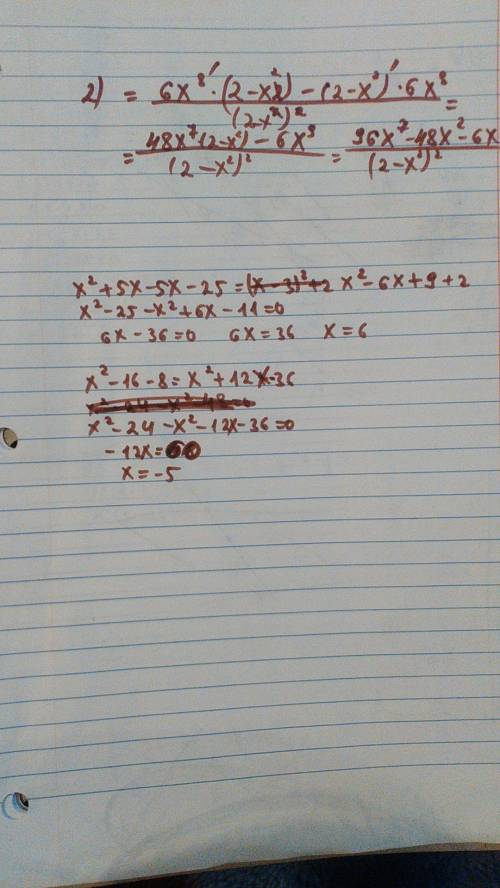 2) = 6x⁸′·(2-x²)-(2-x²)′·6x⁸ / (2-x²)² =
= 48x⁷(2-x²)-6x⁹ / (2-x²)² = 96x⁷-48x²-6x / (2-x²)²
x²+5x-5x-25=(x-3)²+2 x²-6x+9+2
x²-25-x²+6x-11=0
6x-36=0 6x=36 x=6
x²-16-8=x²+12x-36
x²-24-x²-12x-36=0
-12x=60
x=-5